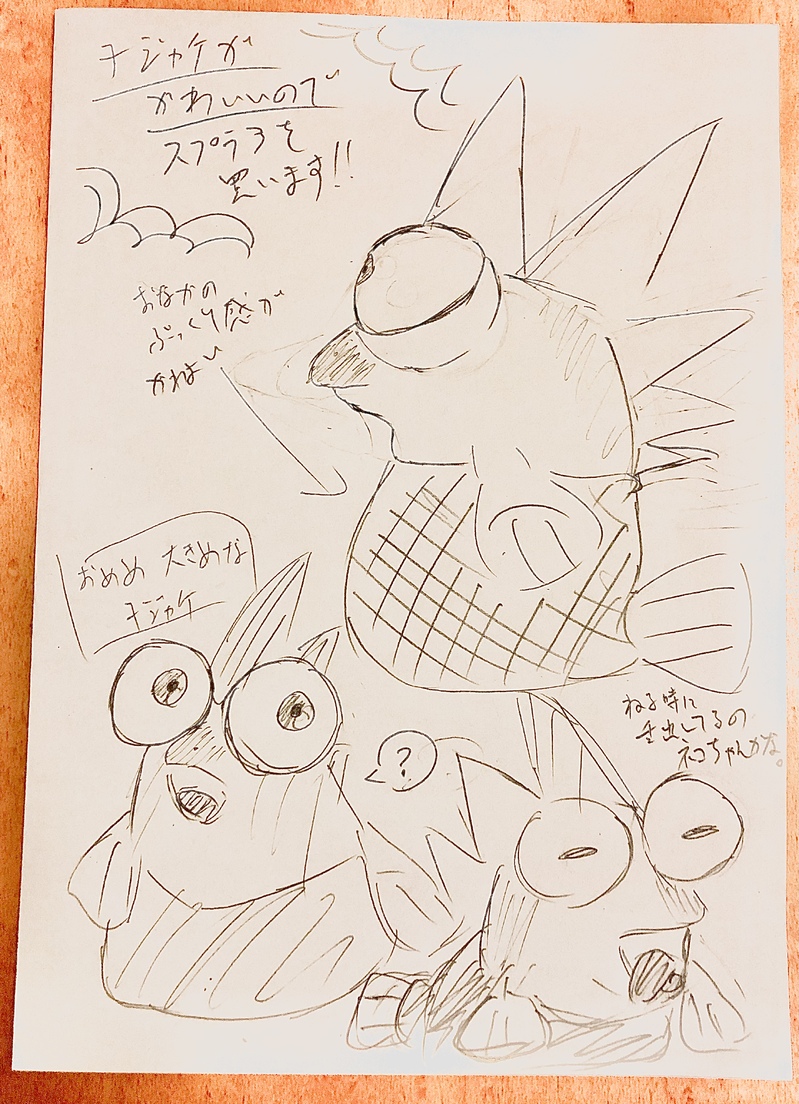 コジャケが
かわいいので
スプラ3を
買います!!
おなかの
ぷっくり感が
かわいい
おめめ 大きめな
コジャケ
?
ねる時に
舌出してるの
ネコちゃんかな。